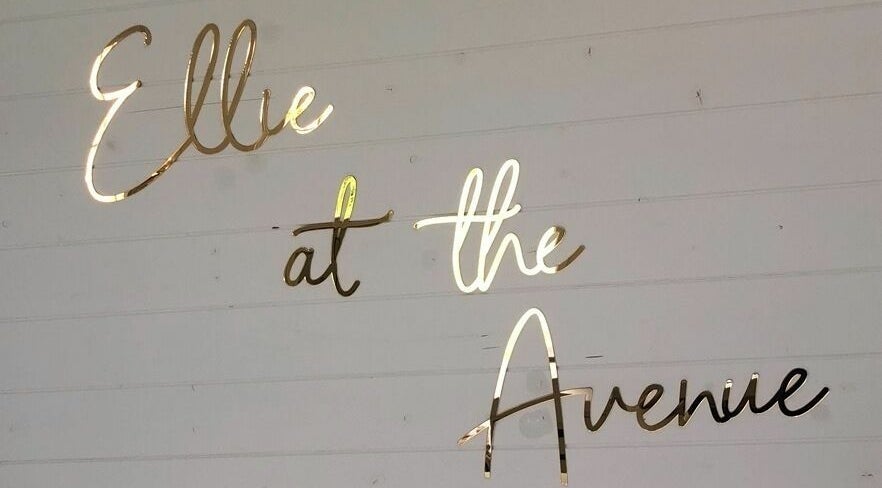 Ellie
at the
Avenue